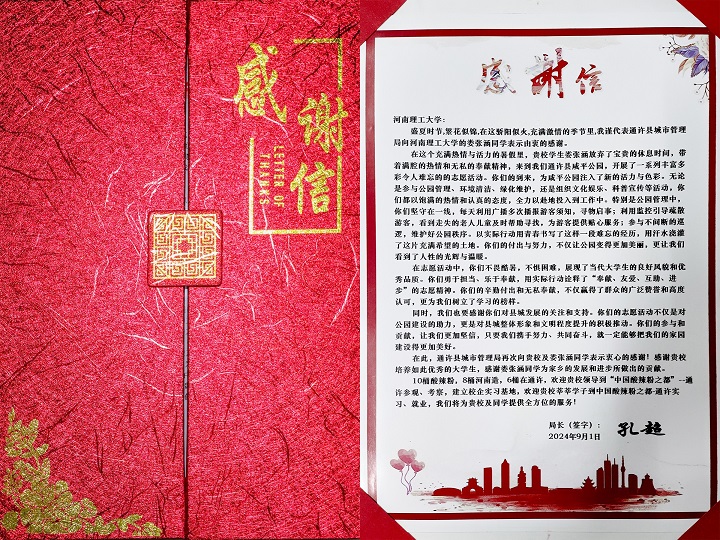 感
谢
信
LETTER OF
THANKS
感谢信
河南理工大学:
盛夏时节,繁花似锦,在这骄阳似火,充满激情的季节里,我谨代表通许县城市管理
局向河南理工大学的娄张涵同学表示由衷的感谢。
在这个充满热情与活力的暑假里,贵校学生娄张涵放弃了宝贵的休息时间,带
着满腔的热情和无私的奉献精神,来到我们通许县咸平公园,开展了一系列丰富多
彩令人难忘的的志愿活动。你们的到来,为咸平公园注入了新的活力与色彩。无论
是参与公园管理、环境清洁、绿化维护,还是组织文化娱乐、科普宣传等活动,你
们都以饱满的热情和认真的态度,全力以赴地投入到工作中。特别是公园管理中,
你们坚守在一线,每天利用广播多次播报游客须知,寻物启事;利用监控引导疏散
游客,看到走失的老人儿童及时帮助寻找,为游客提供贴心服务;与你不间断的巡
逻,维护好公园秩序。以实际行动用青春书写了这样一段难忘的经历,用汗水浇灌
了这片充满希望的土地。你们的付出与努力,不仅让公园变得更加美丽,更让我们
看到了人性的光辉与温暖。
在志愿活动中,你们不畏酷暑,不惧困难,展现了当代大学生的良好风貌和优
秀品质。你们勇于担当、乐于奉献,用实际行动诠释了“奉献、友爱、互助、进
步”的志愿精神。你们的辛勤付出和无私奉献,不仅赢得了群众的广泛赞誉和高度
认可,更为我们树立了学习的榜样。
同时,我们也要感谢你们对县城发展的关注和支持。你们的志愿活动不仅是对
公园建设的助力,更是对县城整体形象和文明程度提升的积极推动。你们的参与和
贡献,让我们更加坚信,只要我们携手努力、共同奋斗,就一定能够把我们的家园
建设得更加美好。
在此,通许县城市管理局再次向贵校及娄张涵同学表示衷心的感谢!感谢贵校
培养如此优秀的大学生,感谢娄张涵同学为家乡的发展和进步所做出的贡献。
10桶酸辣粉,8桶河南造,6桶在通许,欢迎贵校领导到“中国酸辣粉之都”--通
许参观、考察,建立校企实习基地,欢迎贵校莘莘学子到中国酸辣粉之都-通许实
习、就业,我们将为贵校及同学提供全方位的服务!
局长（签字）: 孔超
2024年9月1日